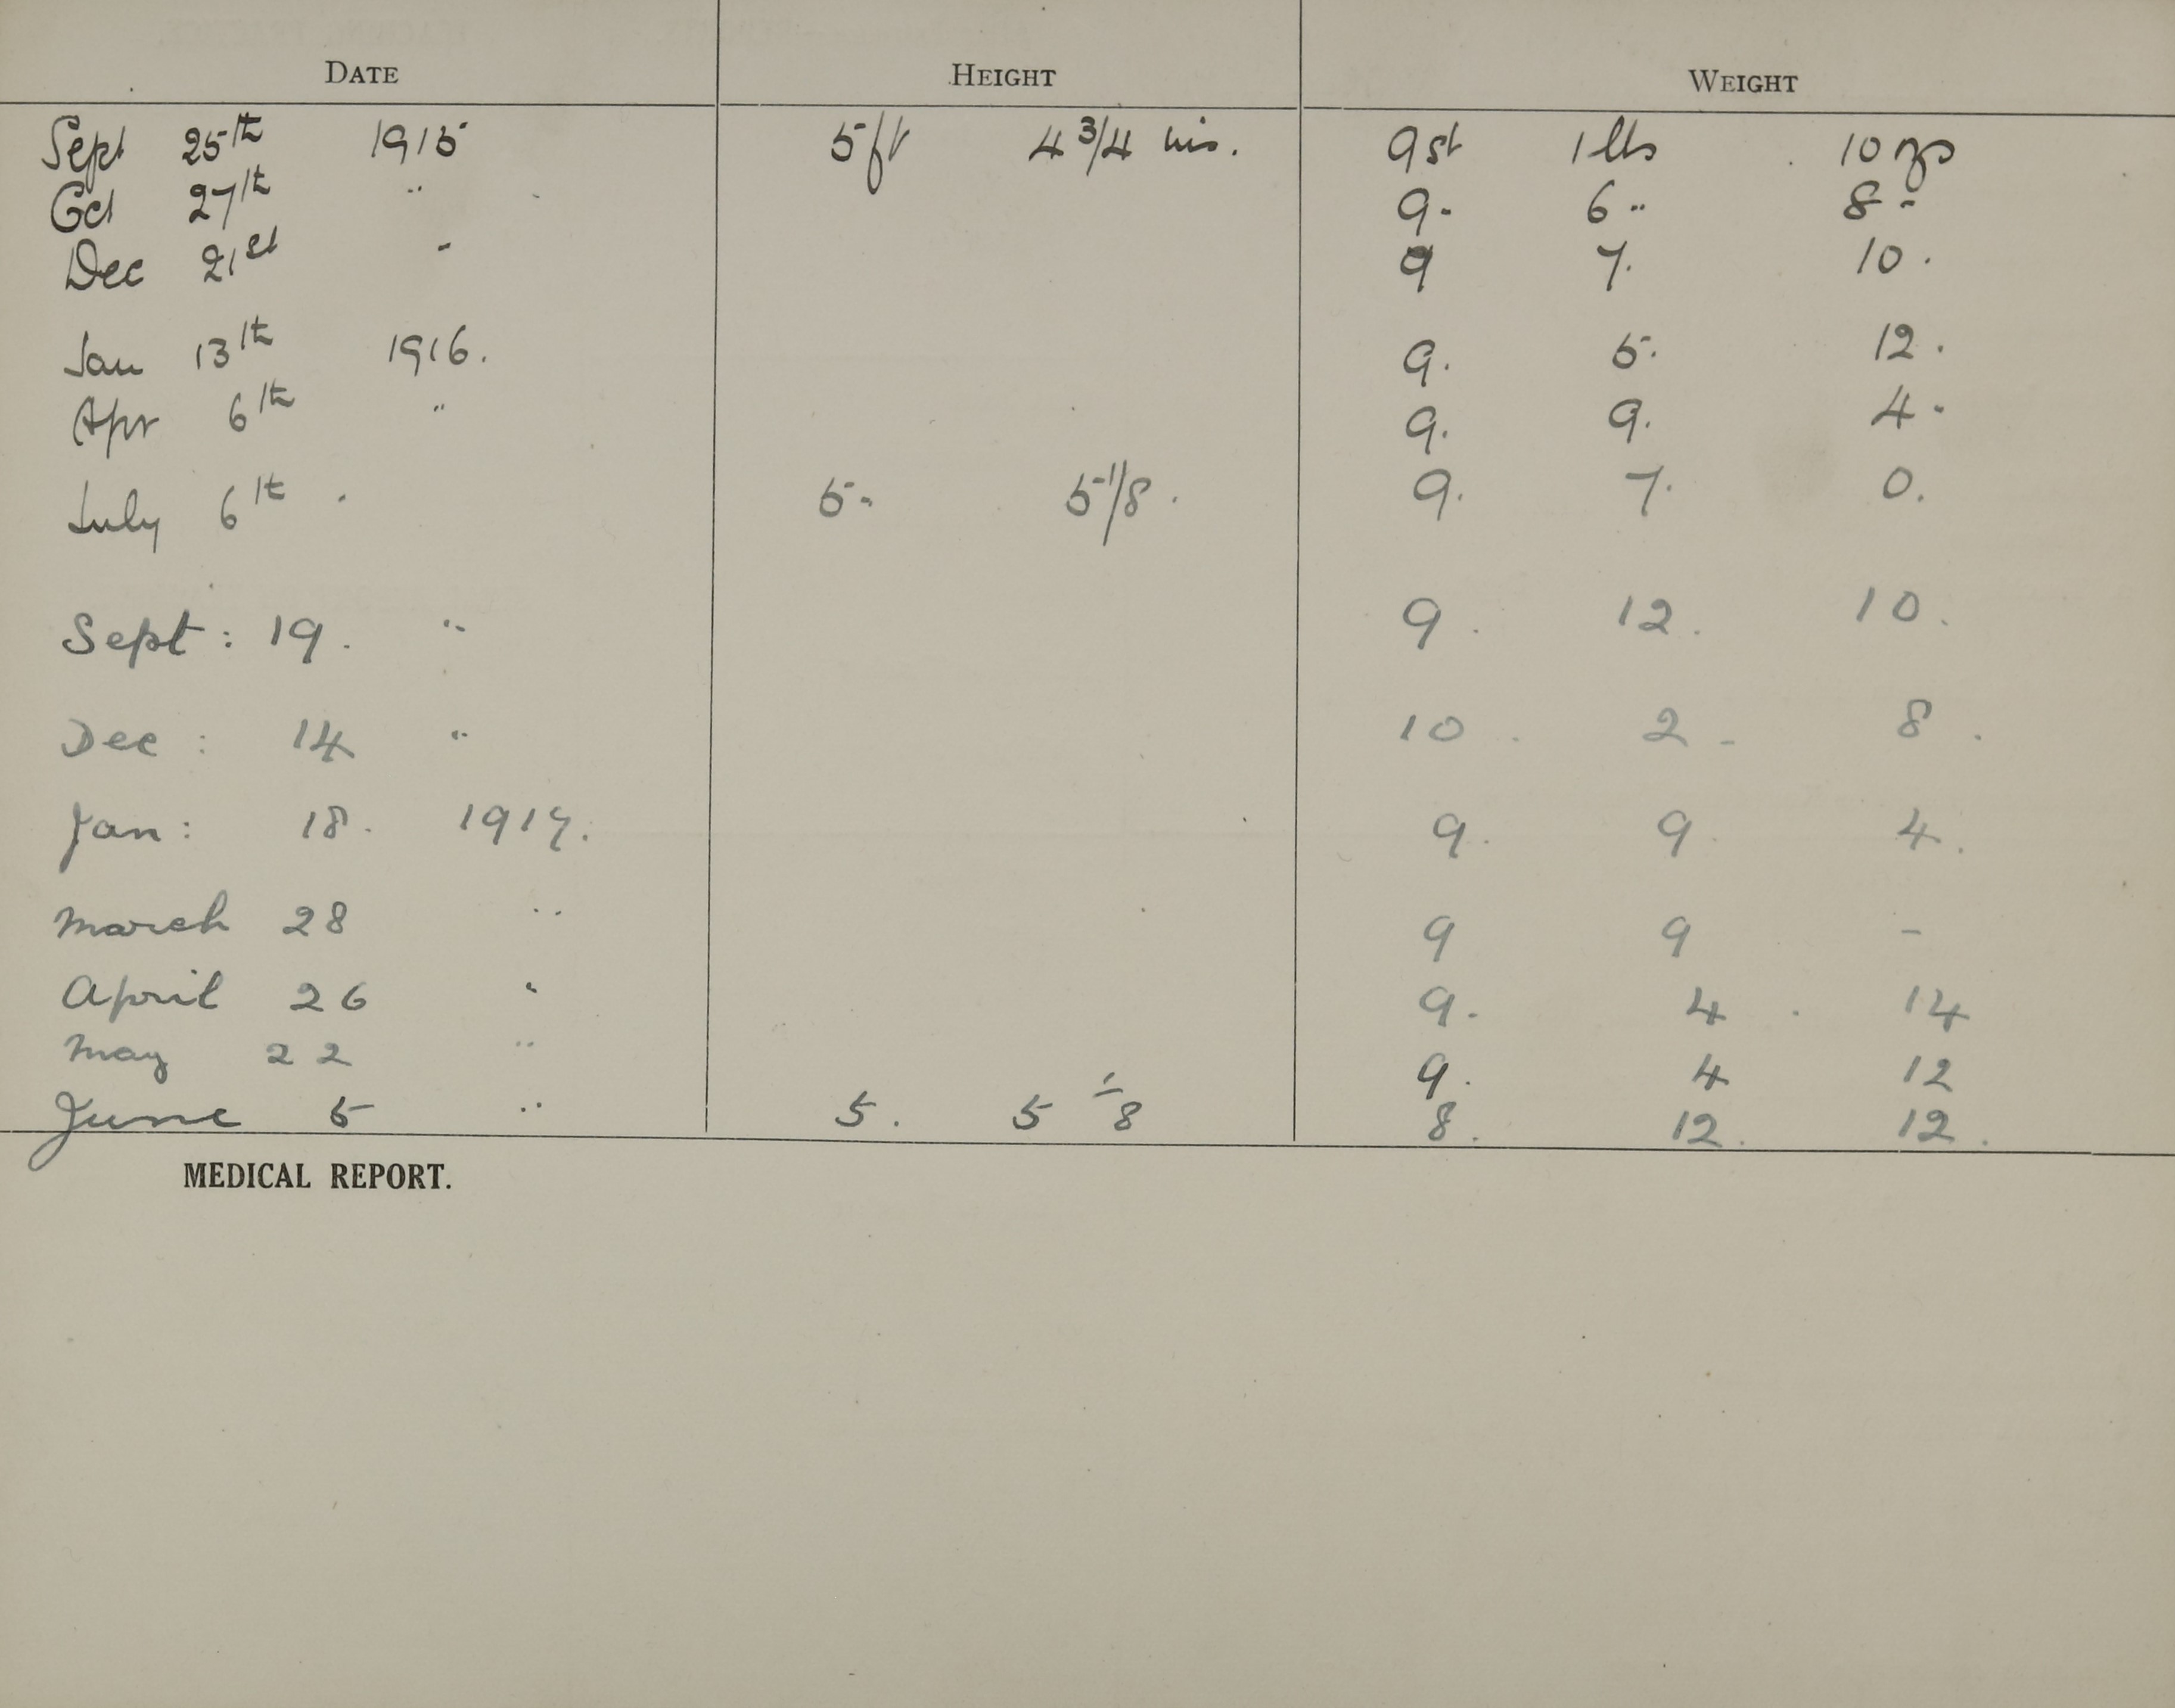 DATE HEIGHT WEIGHT
Sept 25th 1915 5ft 4 3/4 ins. 9st 1lbs 10 ozs
Oct 27th " 9. 6 " 8 "
Dec 21st " 9 7. 10.
Jan 13th 1916. 9. 5. 12.
Apr 6th " 9. 9. 4.
July 6th . 5 " 5 1/8 . 9. 7. 0.
Sept: 19. " 9. 12. 10.
Dec: 14 " 10. 2 - 8.
Jan: 18. 1917. 9. 9. 4.
March 28 " 9 9 -
April 26 " 9. 4. 14
May 22 " 9. 4 12
June 5 " 5. 5 1/8 8. 12. 12.
MEDICAL REPORT.